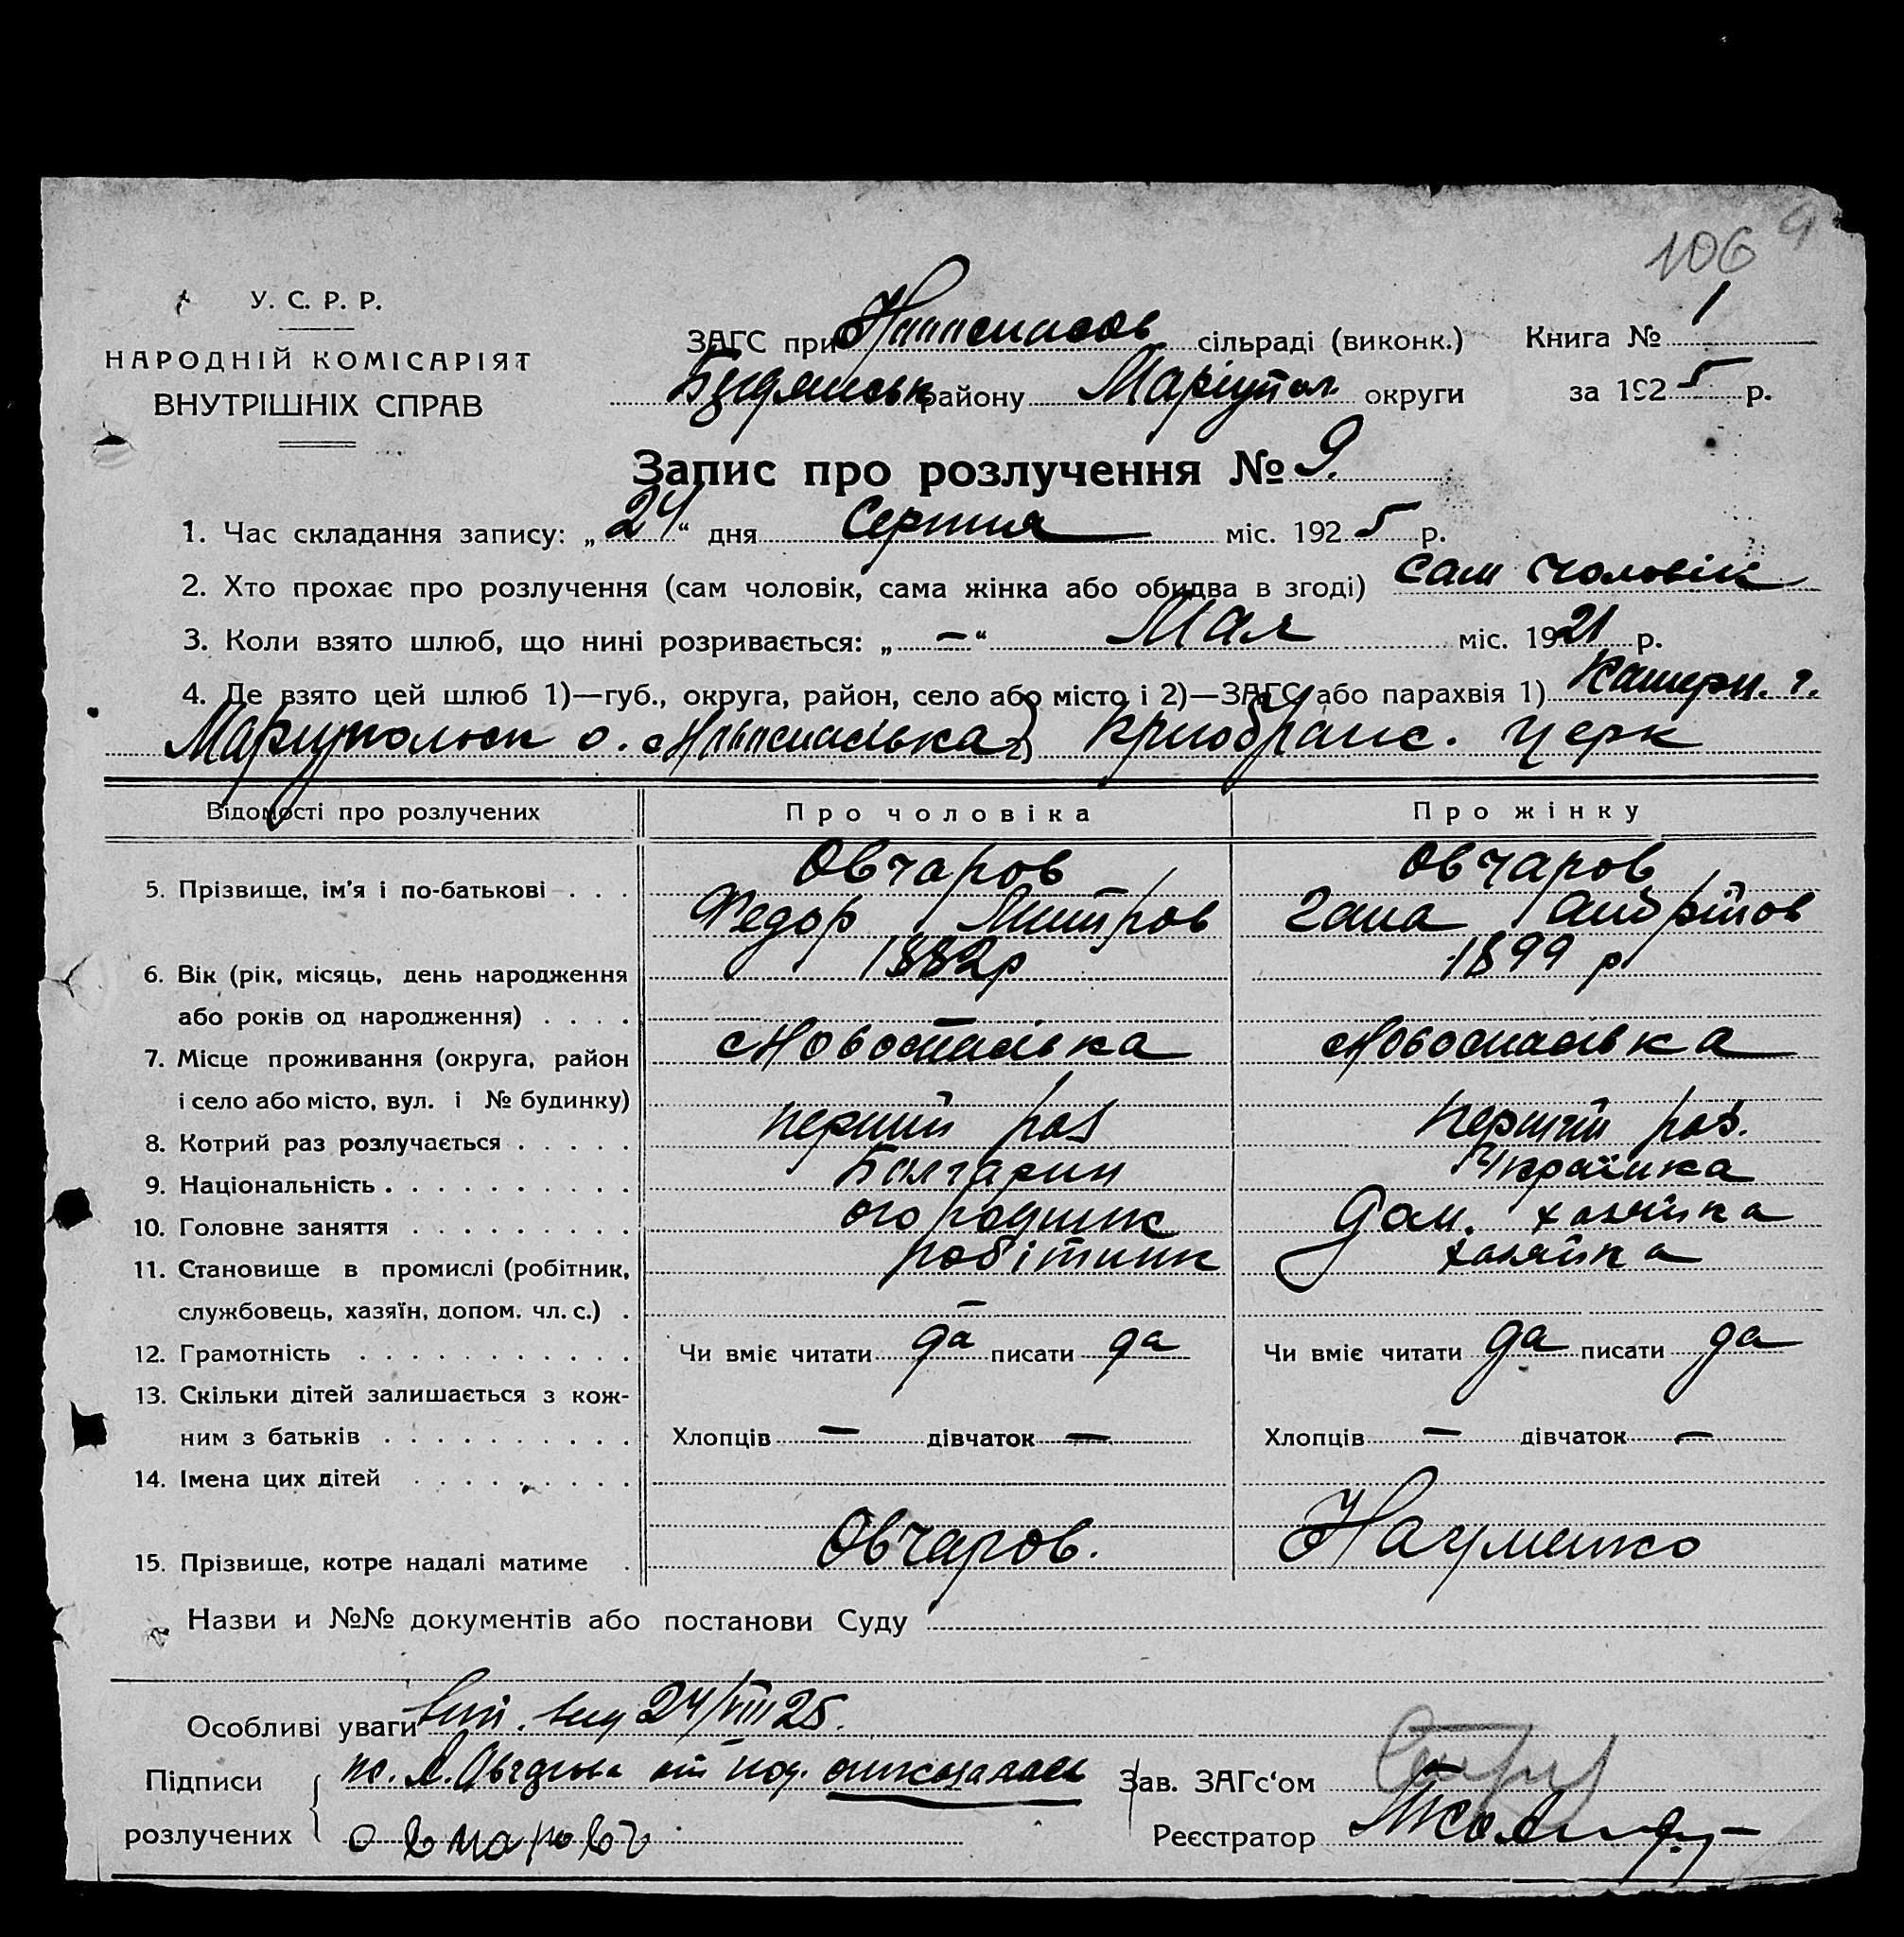 106 9
У. С. Р. Р.
НАРОДНІЙ КОМІСАРІЯТ
ВНУТРІШНІХ СПРАВ
ЗАГС при сільраді (виконк.) Книга № 1
району Маріупол. округи за 1925 р.
Запис про розлучення № 9.
1. Час складання запису: „24“ дня Серпня міс. 1925 р.
2. Хто прохає про розлучення (сам чоловік, сама жінка або обидва в згоді) сам чоловік
3. Коли взято шлюб, що нині розривається: „—“ Мая міс. 1921 р.
4. Де взято цей шлюб 1)—губ., округа, район, село або місто і 2)—ЗАГС або парахвія 1) Катерн. г.
о. 2) церк
Відомості про розлучених Про чоловіка Про жінку
Овчаров Овчаров
5. Прізвище, ім'я і по-батькові . . . Федор Митров Гана
6. Вік (рік, місяць, день народження 1882р 1899 р
або років од народження) . . . .
7. Місце проживання (округа, район Новоспасівка Новоспасівка
і село або місто, вул. і № будинку)
8. Котрий раз розлучається . . . . . перший раз перший раз.
9. Національність . . . . . . . . . . Болгарин Українка
10. Головне заняття . . . . . . . . . огородник Дом. хазяйка
11. Становище в промислі (робітник, робітник хазяйка
службовець, хазяїн, допом. чл. с.) . —
12. Грамотність . . . . . . . . . . . Чи вміє читати да писати да Чи вміє читати да писати да
13. Скільки дітей залишається з кож-
ним з батьків . . . . . . . . . . Хлопців — дівчаток — Хлопців — дівчаток —
14. Імена цих дітей . . . . . . . . .
15. Прізвище, котре надалі матиме . Овчаров. Науменко
Назви и №№ документів або постанови Суду
Особливі уваги 24/VIII 25.
Підписи от под. отказалась Зав. ЗАГс'ом
розлучених Реєстратор